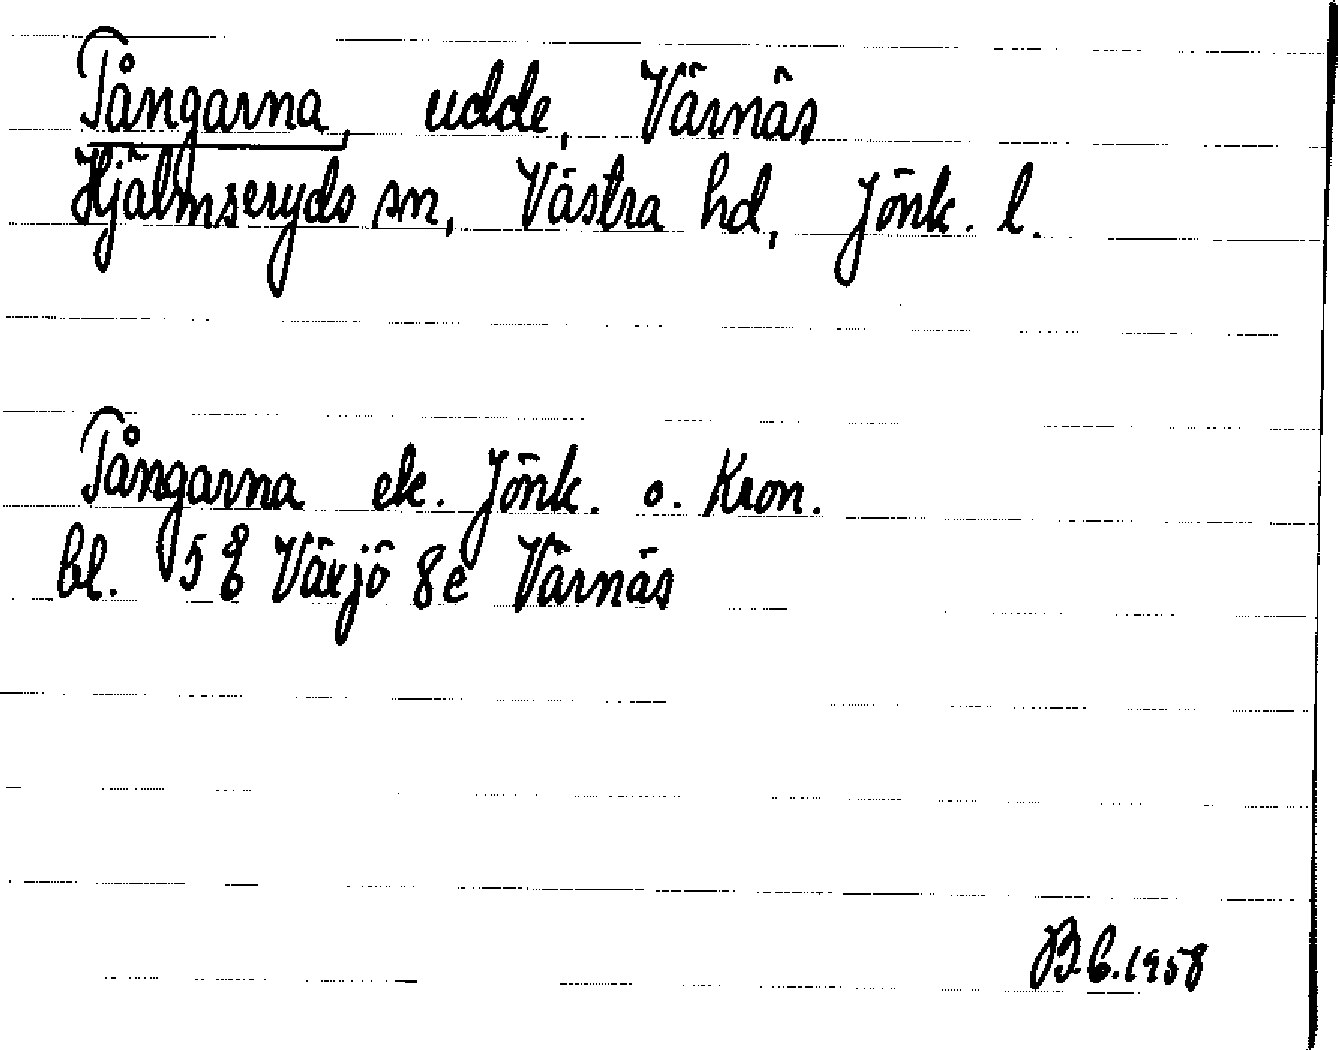 Tångarna, udde, Värnäs
Hjälmseryds sn, Västra hd, Jönk. l.
Tångarna ek. Jönk. o. Kron.
bl. 5 E Växjö 8e Värnäs
B.b. 1958